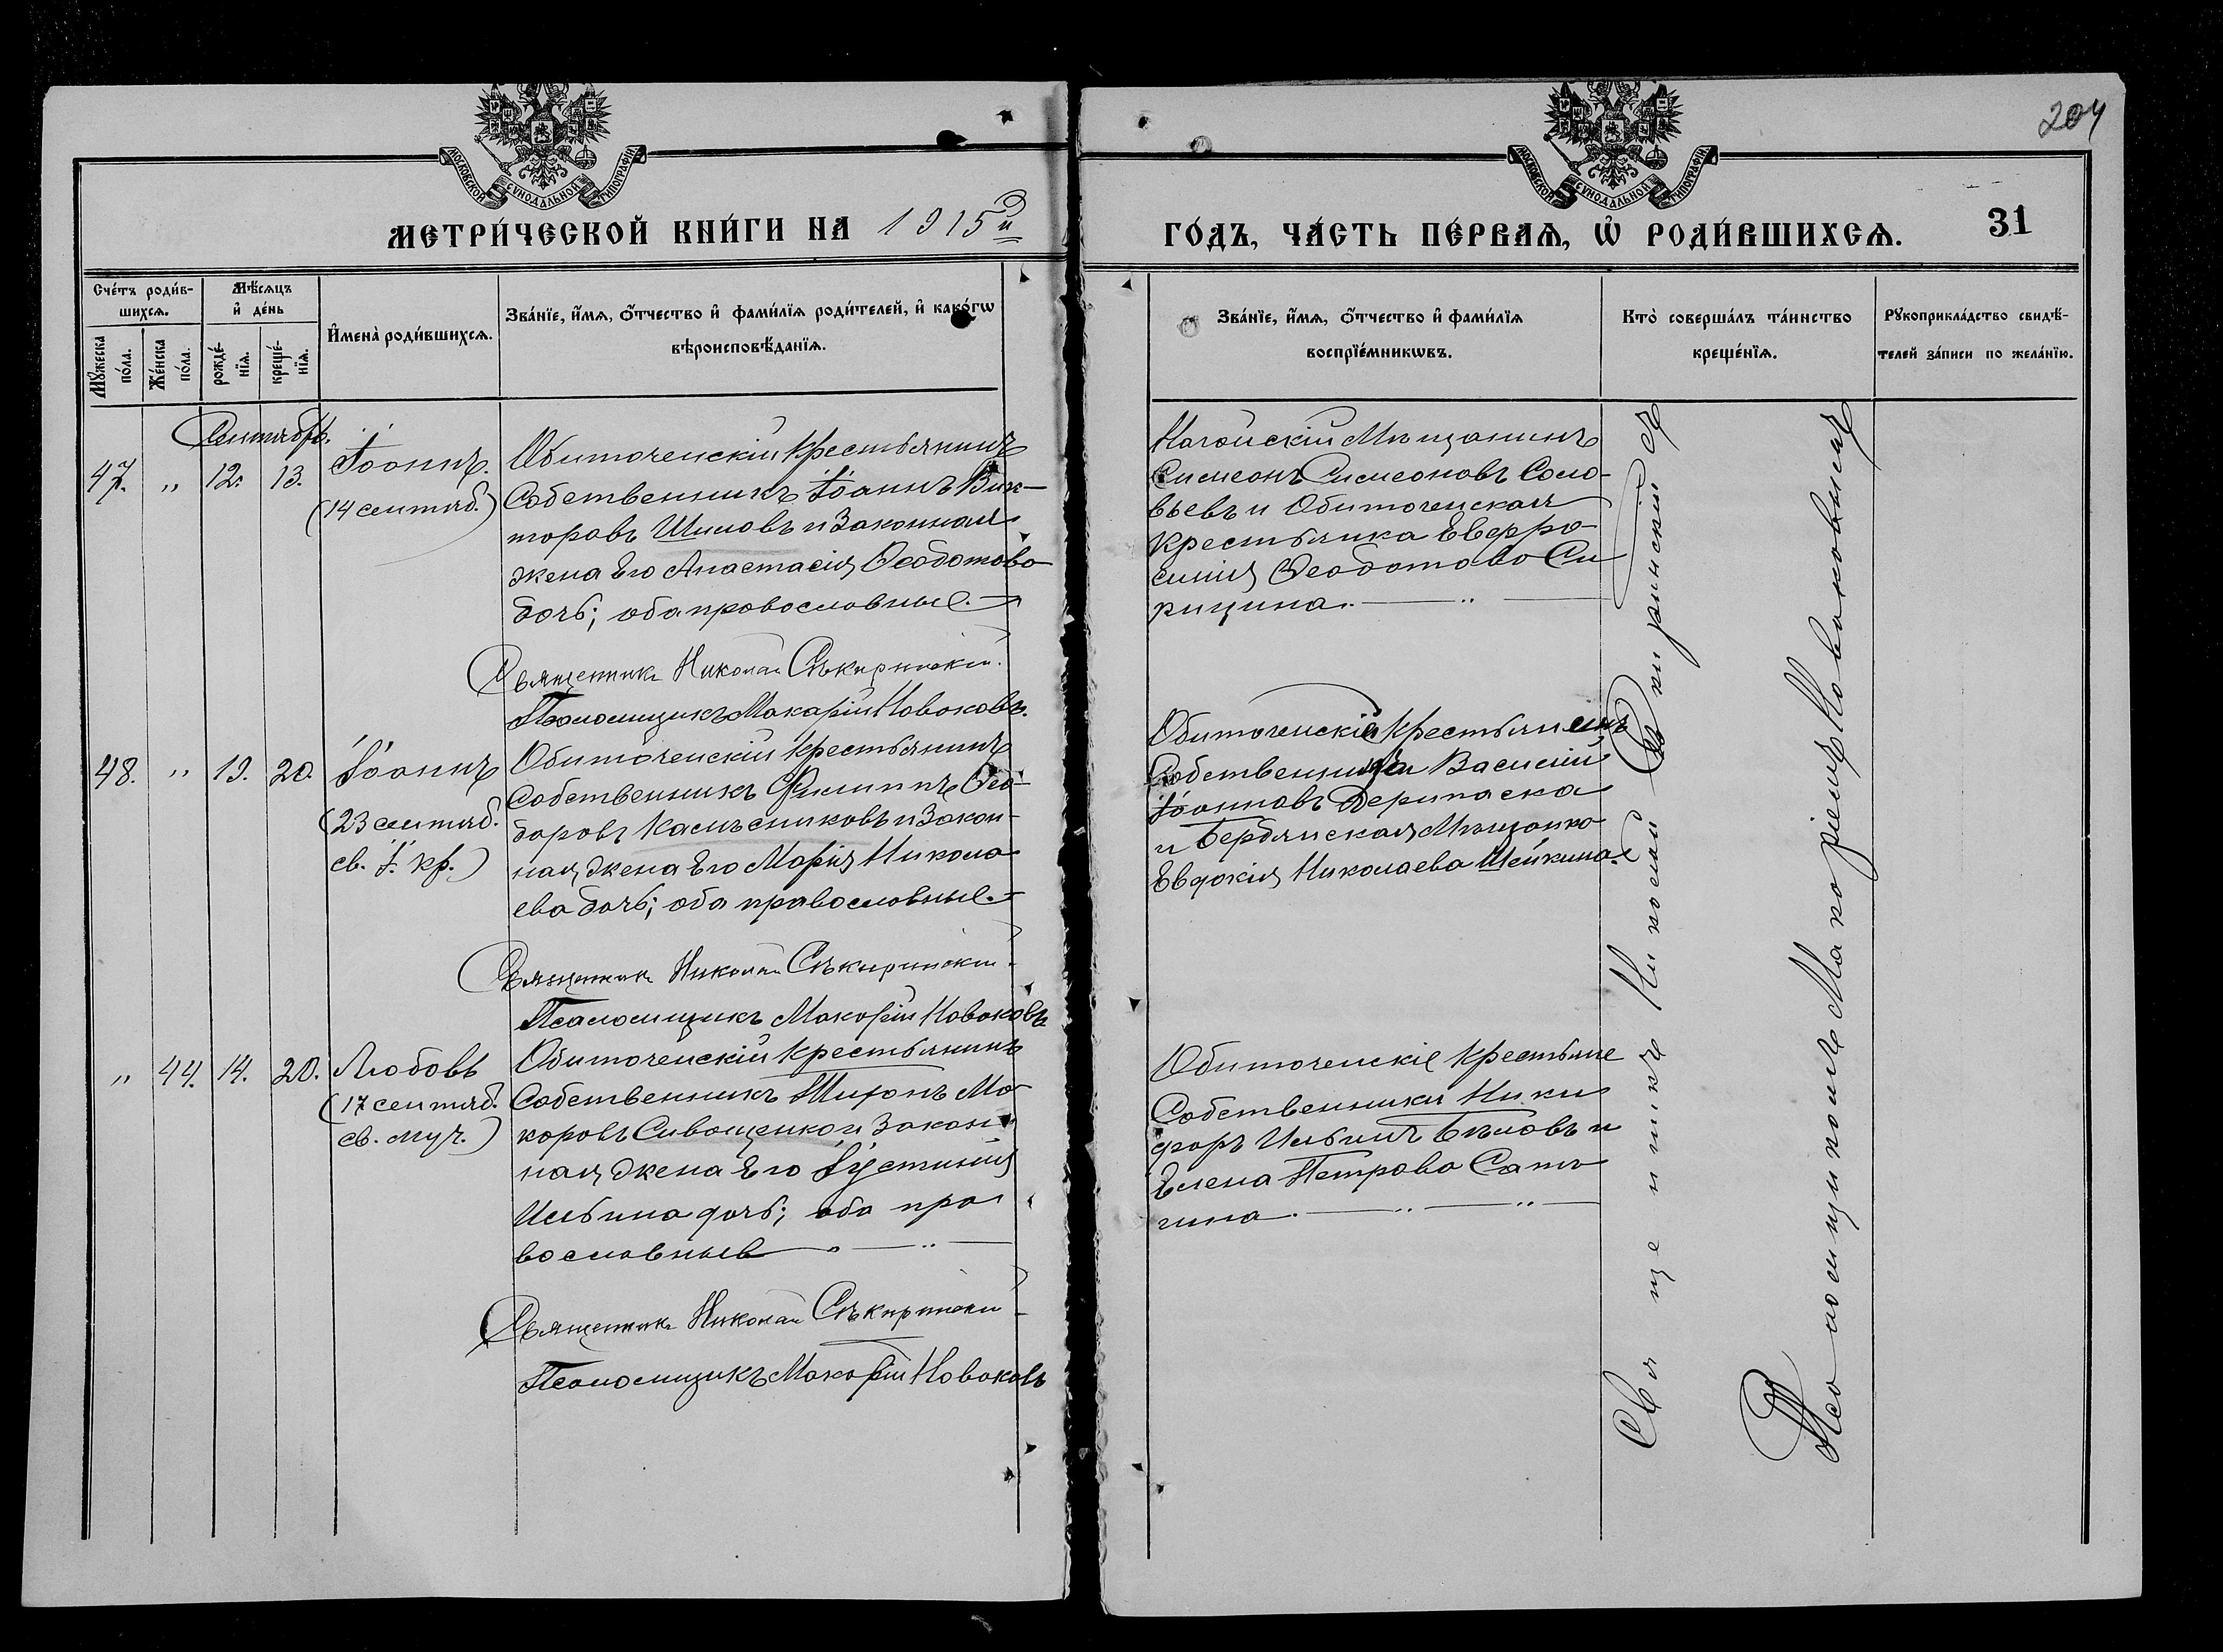 204
МОСКОВСКОЙ СУНОДАЛЬНОЙ ТИПОГРАФІИ
МОСКОВСКОЙ СУНОДАЛЬНОЙ ТИПОГРАФІИ
МЕТРИ́ЧЕСКОЙ КНИ́ГИ НА 1915й
ГО́ДЪ, ЧА́СТЬ ПЕ́РВАѦ, Ѡ҆ РОДИ́ВШИХСѦ.
31
Сче́тъ роди́в-
шихсѧ.
Мѣ́сѧцъ
и҆ де́нь
Мꙋ́жеска
по́ла.
Же́нска
по́ла.
рожде́-
нїѧ.
креще́-
нїѧ.
И҆мена̀ роди́вшихсѧ.
Зва́нїе, и҆́мѧ, ѻ҆́тчество и҆ фами́лїѧ роди́телей, и҆ како́гѡ
вѣроисповѣ́данїѧ.
Зва́нїе, и҆́мѧ, ѻ҆́тчество и҆ фами́лїѧ
воспрїе́мникѡвъ.
Кто̀ соверша́лъ та́инство
креще́нїѧ.
Рꙋкоприкла́дство свидѣ́-
телей за́писи по жела́нїю.
Сентябрь.
47. " 12. 13.
Іоаннъ.
(14 сентяб.)
Обиточенскій крестьянинъ
Собственникъ Іоаннъ Вик-
торовъ Шиловъ и Законная
жена Его Анастасія Ѳеодотова
дочь; оба православные.
Священникъ Николай Сѣкиринскій.
Псаломщикъ Макарій Новаковъ.
Ногайскій Мѣщанинъ
Симеонъ Симеоновъ Соло-
вьевъ и Обиточенская
крестьянка Евфро-
синія Ѳеодотова Си
рицина.
48. " 19. 20.
Іоаннъ
(23 сентяб.
св. І. Кр.)
Обиточенскій крестьянинъ
Собственникъ Филиппъ Ѳео-
доровъ Калѣсниковъ и Закон-
ная жена Его Марія Никола
ева дочь; оба православные.
Священникъ Николай Сѣкиринскій
Псаломщикъ Макарій Новаковъ
Обиточенскій крестьянинъ
Іоанновъ Дерипаска
и Бердянская Мѣщанка
Евдокія Николаева Шейкина.
" 44. 14. 20.
Любовь
(17 сентяб.
св. муч.)
Обиточенскій крестьянинъ
Собственникъ Тихонъ Ма
каровъ Сивощенко и Закон
ная жена Его Іустинія
Ильина дочь; оба пра
вославные
Священникъ Николай Сѣкиринскій
Псаломщикъ Макарій Новаковъ
Обиточенскіе крестьяне
Собственники Ники
форъ Ильинъ Бѣловъ и
Елена Петрова Сати
гина.